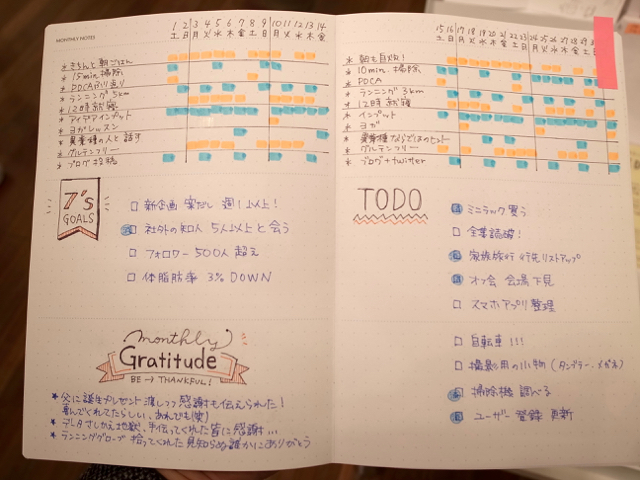 MONTHLY NOTES
1 2 3 4 5 6 7 8 9 10 11 12 13 14
土 日 月 火 水 木 金 土 日 月 火 水 木 金
* きちんと朝ごはん
* 15min.掃除
* PDCAふり返り
* ランニング5km
* 12時就寝
* アイデアインプット
* ヨガレッスン
* 異業種の人と話す
* グルテンフリー
* ブログ投稿
7's
GOALS
□ 新企画 案だし 週1以上!
□ 社外の知人 5人以上と会う
□ フォロワー 500人 超え
□ 体脂肪率 3% DOWN
monthly
Gratitude
BE → THANKFUL!
* 父に誕生プレゼント渡しつつ感謝も伝えられた!
喜んでくれてたらしい、あれでも(笑)
* データさしかえ地獄、手伝ってくれた皆に感謝...
* ランニンググローブ 拾ってくれた見知らぬ誰かにありがとう
15 16 17 18 19 20 21 22 23 24 25 26 27 28 29
土 日 月 火 水 木 金 土 日 月 火 水 木 金
* 朝も自炊!
* 10min.掃除
* PDCA
* ランニング3km
* 12時就寝
* インプット
* ヨガ
* 異業種ならではのヒット
* グルテンフリー
* ブログ+twitter
TODO
ミニラック買う
□ 企業読破!
家族旅行 行先リストアップ
オフ会 会場下見
□ スマホアプリ整理
□ 自転車!!!
□ 撮影用の小物(タンブラー・メガネ)
掃除機 調べる
ユーザー登録 更新